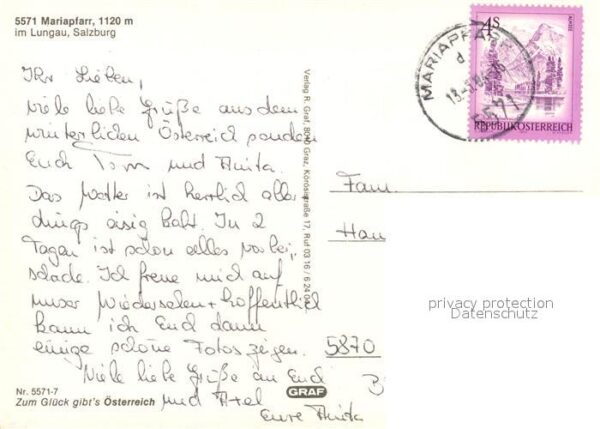 5571 Mariapfarr, 1120 m
im Lungau, Salzburg
Ihr Lieben,
viele liebe Grüße aus dem
winterlichen Österreich senden
Euch Tom und Anita.
Das Wetter ist herrlich aller-
dings eisig kalt. In 2
Tagen ist schon alles vorbei,
schade. Ich freue mich auf
unser Wiedersehen + hoffentlich
kann ich Euch dann
einige schöne Fotos zeigen.
Viele liebe Grüße an Euch
und Axel
Eure Anita
Nr. 5571-7
Zum Glück gibt's Österreich
Verlag R. Graf, 8010 Graz, Körösistraße 17, Ruf 03 16 / 6 24 04
GRAF
MARIAPFARR
5571
4s
REPUBLIK ÖSTERREICH
Fam.
Han
5870
privacy protection
Datenschutz